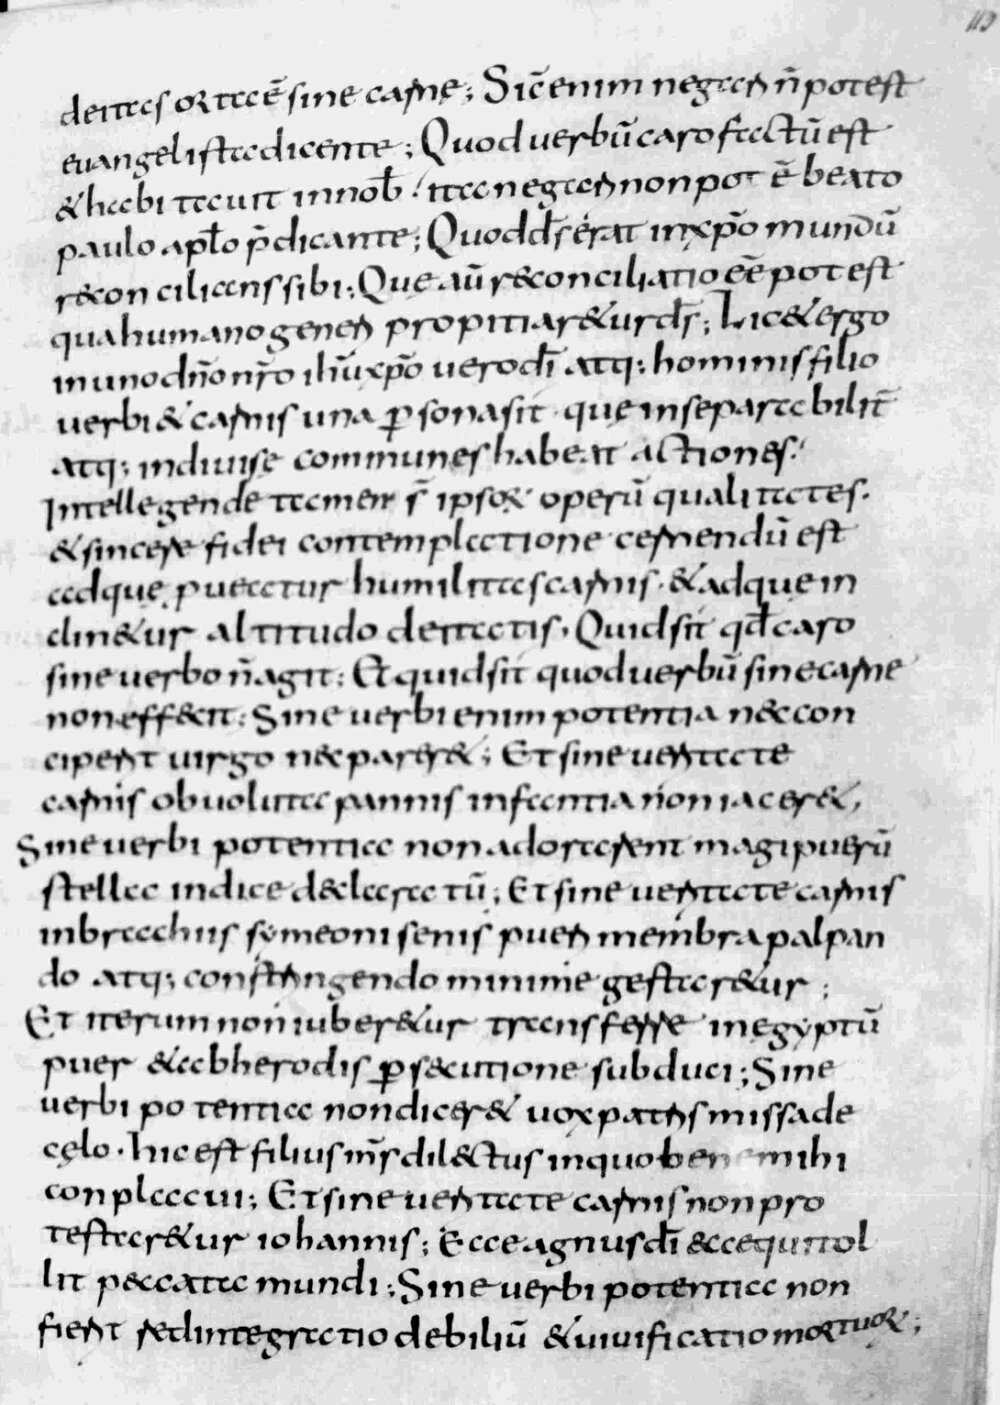 113
deitas orta ē sine carne; Sic̄ enim negari n̄ potest
euangelista dicente; Quod uerbū caro factū est
& habitauit in nob̄. ita negari non potē beato
paulo apl̄o p̄dicante; Quod d̄s erat in xp̄o mundū
reconcilians sibi; Que aū reconciliatio eē potest
qua humano generi propitiar&ur d̄s; Lic& ergo
in uno dn̄o nr̄o ih̄u xp̄o uero dī atq; hominis filio
uerbi & carnis una ꝑsona sit. quę inseparabilit̄
atq; indiuisę communes habeat actiones.
Intellegende tamen s̄ ipsoꝝ operū qualitates.
& sincerę fidei contemplatione cernendū est
ad quę pueatur humilitas carnis. & ad quę in
clin&ur altitudo deitatis. Quid sit qđ caro
sine uerbo n̄ agit; Et quid sit quod uerbū sine carne
non efficit; Sine uerbi enim potentia nec con
ciperit uirgo nec parer&; Et sine ueritate
carnis obuoluta pannis infantia non iacer&,
Sine uerbi potentia non adorarent magi puerū
stellae indice declaratū; Et sine ueritate carnis
in brachiis symeoni senis pueri membra palpan
do atq; constringendo minime gestar&ur;
Et iterum non iuber&ur transferre in egyptū
puer & ab herodis ꝑsecutione subduci; Sine
uerbi potentia non dicer& uox patris missa de
cęlo. Hic est filius m̄s dilectus in quo bene mihi
conplacui; Et sine ueritate carnis non pro
testar&ur iohannis; Ecce agnus dī ecce qui tol
lit peccata mundi; Sine uerbi potentia non
fierit redintegratio debiliū & uiuificatio mortuoꝝ;